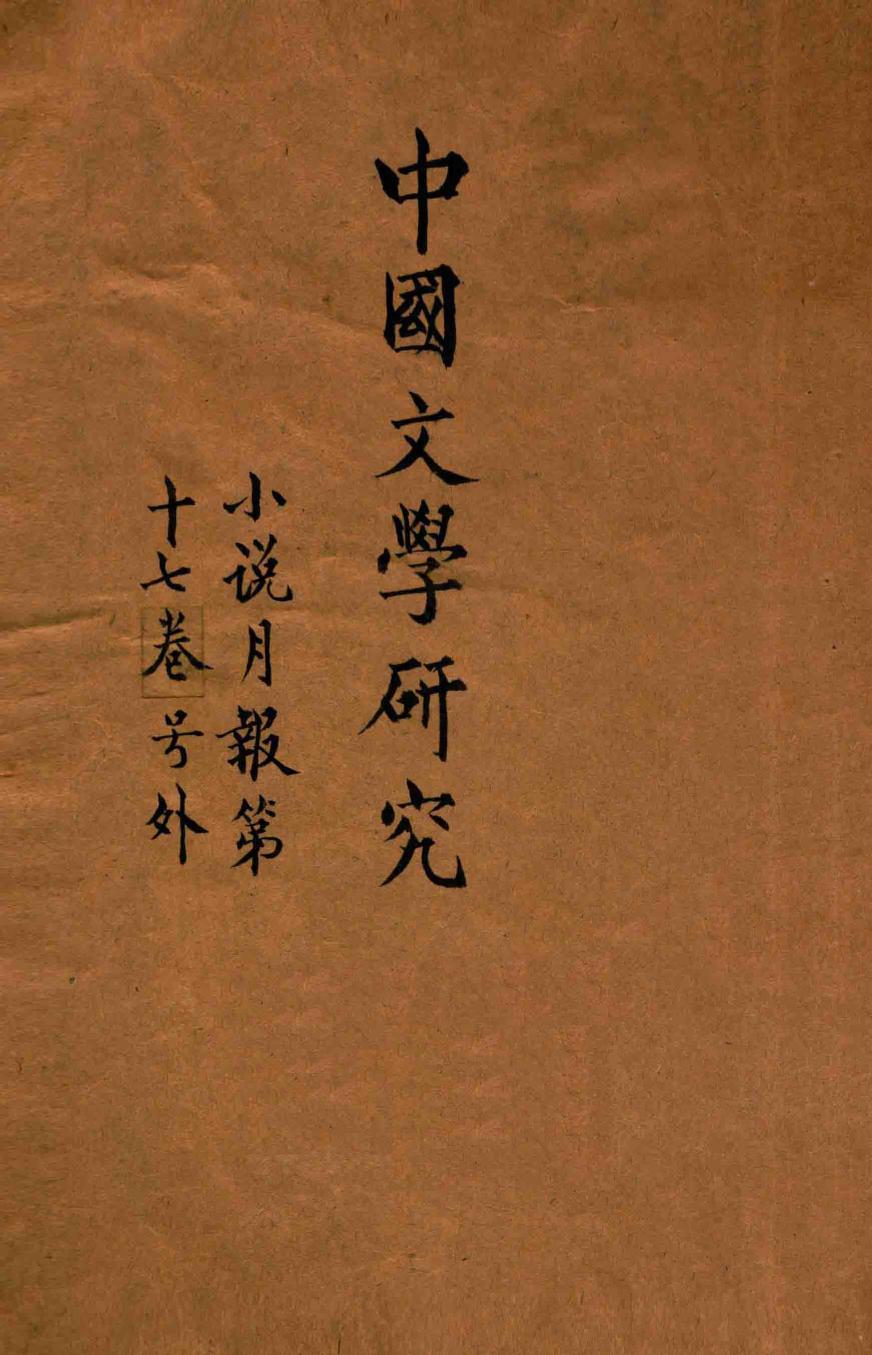 中國文學研究
小说月報第
十七卷号外